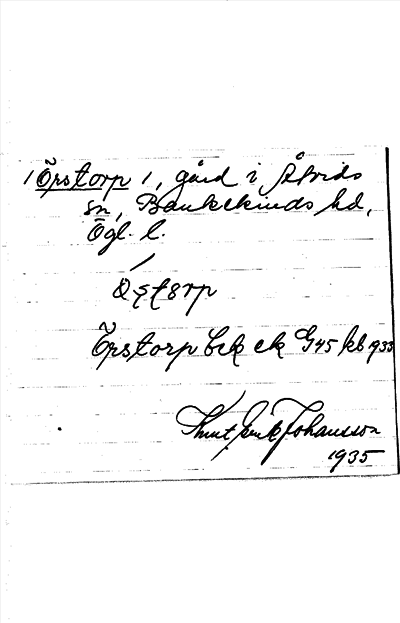 /Örstorp 1, gård i Åtvids
sn, Bankekinds hd,
Ögl. l.
Örstorp lek ek G45 kb 1933
Knut Erik Johansson
1935